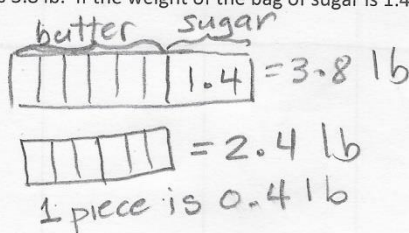 s 3.8 lb. If the weight of the bag of sugar is 1.4
butter sugar
1.4 = 3.8 lb
= 2.4 lb
1 piece is 0.4 lb